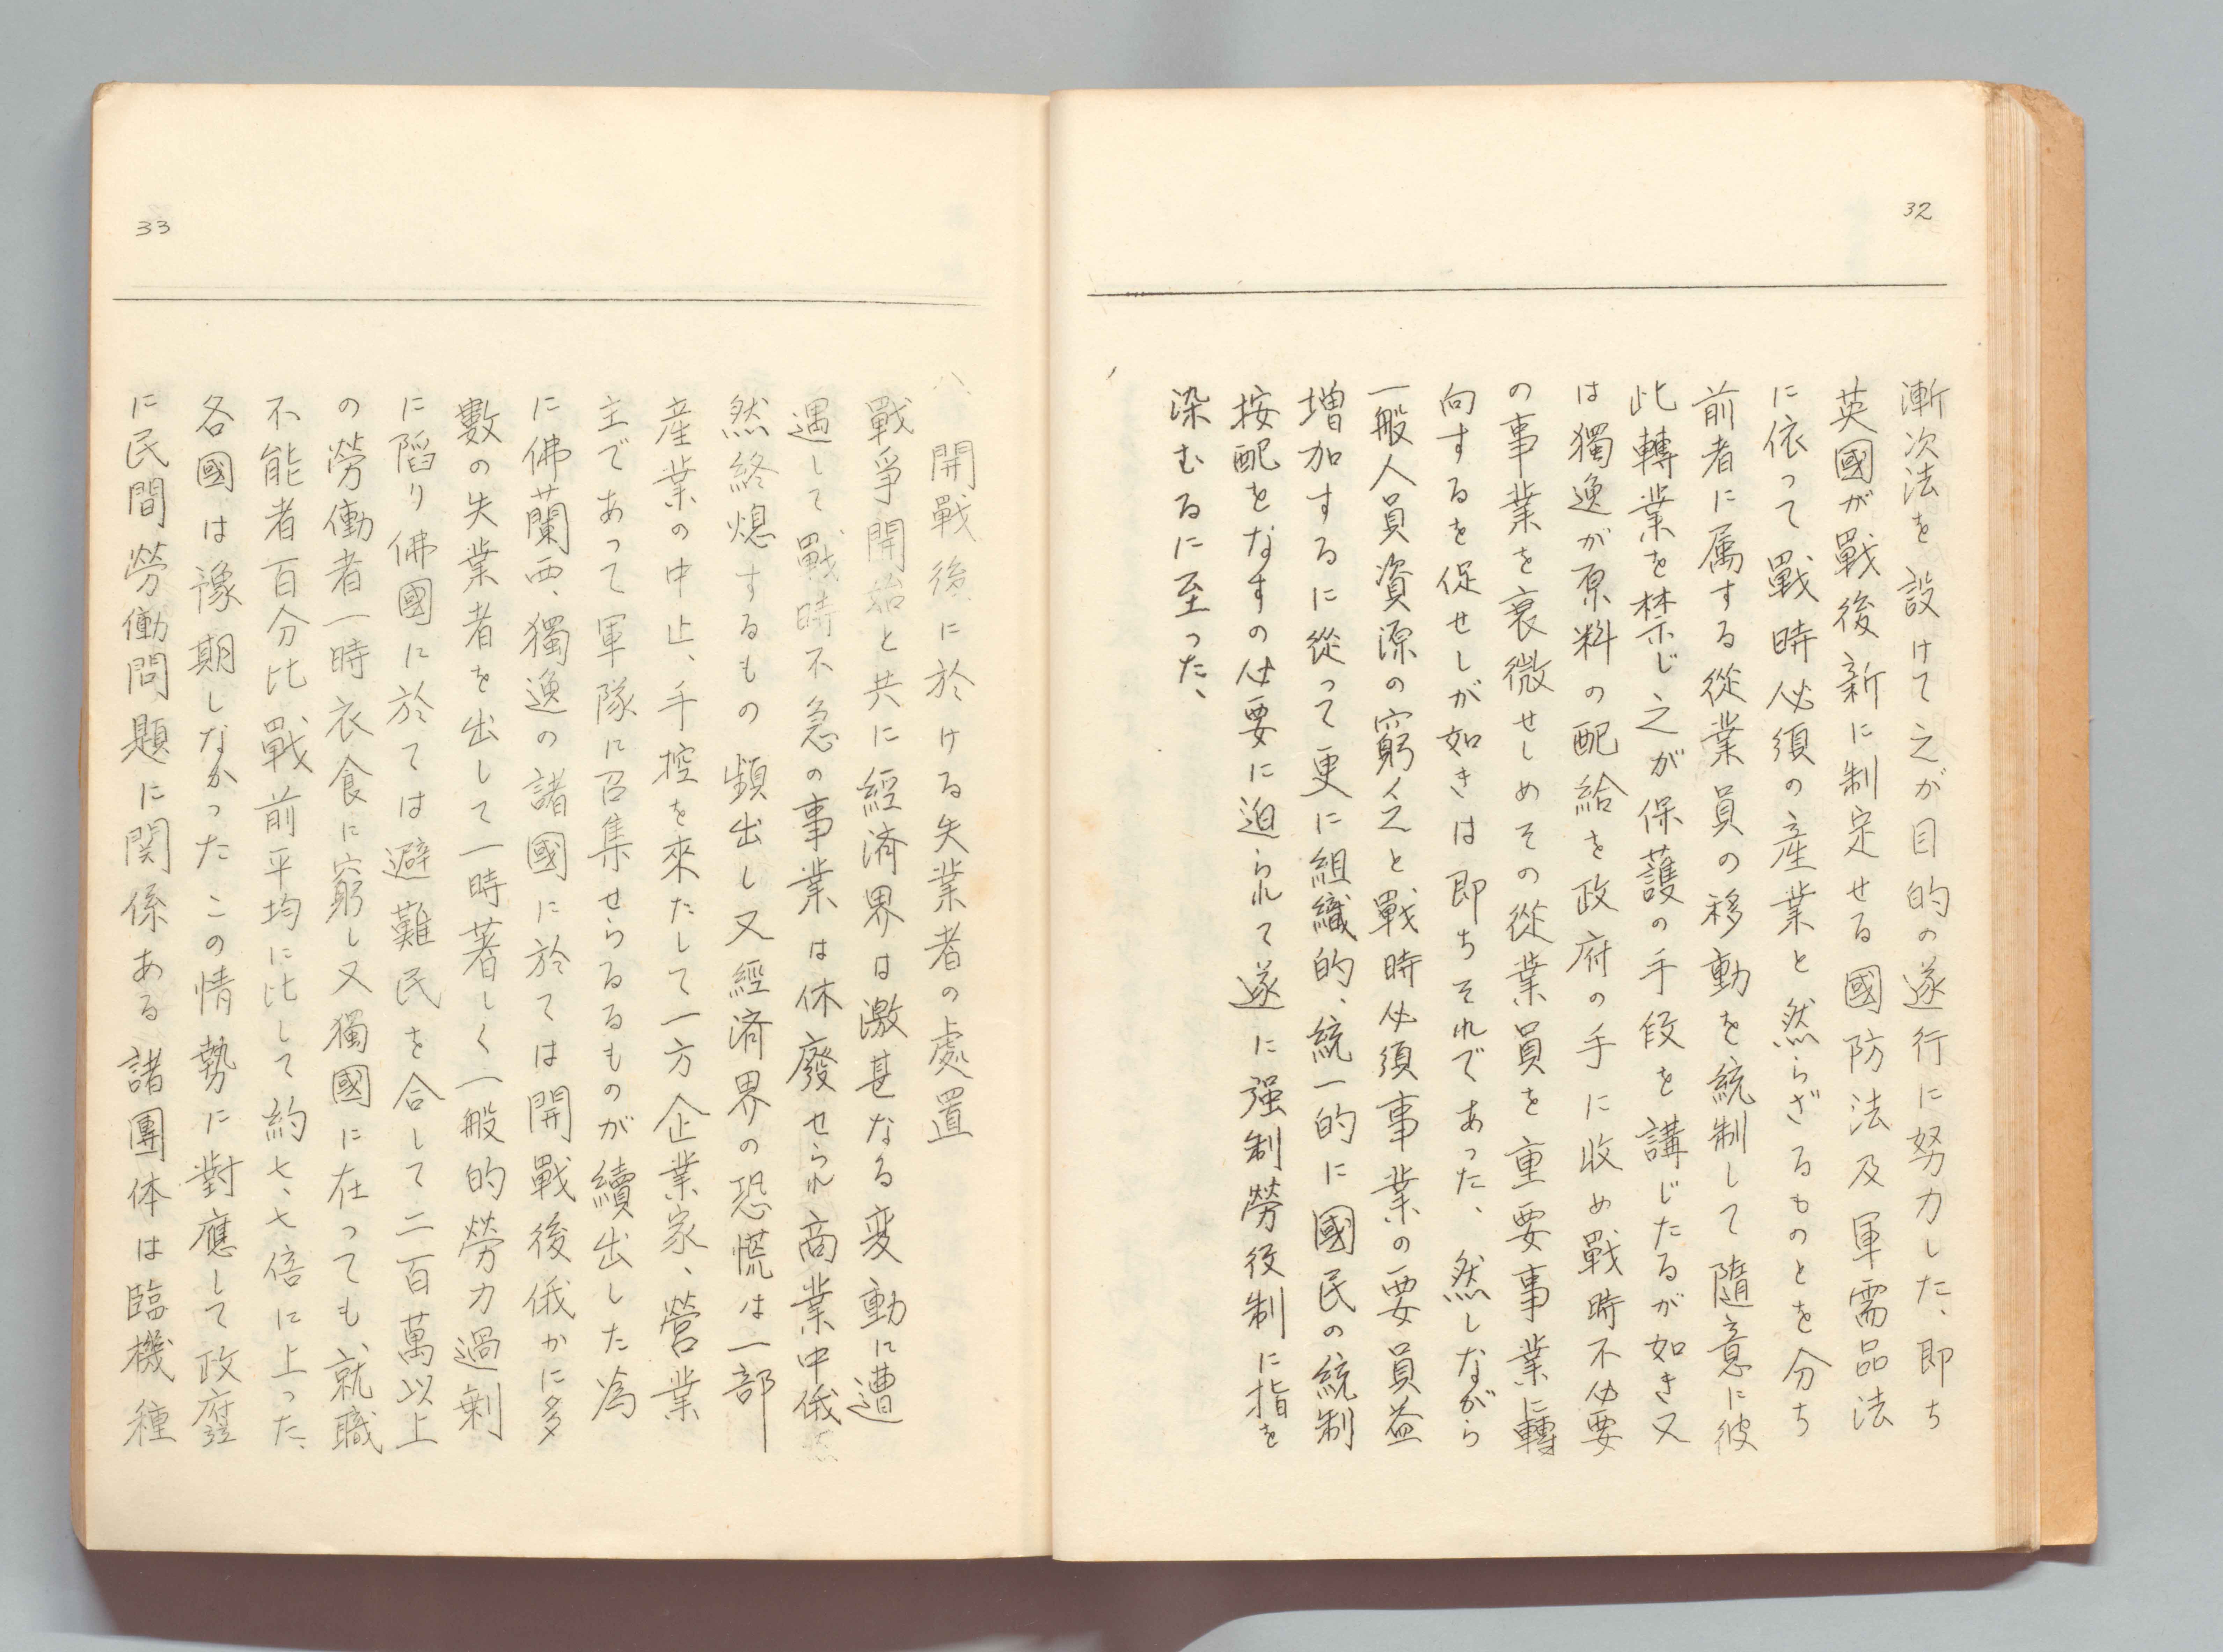 32
漸次法を設けて之が目的の遂行に努力した、即ち
英國が戰後新に制定せる國防法及軍需品法
に依って戰時必須の産業と然らざるものとを分ち
前者に属する從業員の移動を統制して隨意に彼
此轉業を禁じ之が保護の手段を講じたるが如き又
は獨逸が原料の配給を政府の手に收め戰時不必要
の事業を衰微せしめその從業員を重要事業に轉
向するを促せしが如きは即ちそれであった、然しながら
一般人員資源の窮乏と戰時必須事業の要員益
増加するに從って更に組織的、統一的に國民の統制
按配をなすの必要に迫られて遂に强制勞役制に指を
染むるに至った、
33
八、開戰後に於ける失業者の處置
戰爭開始と共に經済界は激甚なる変動に遭
遇して戰時不急の事業は休廢せられ商業中俄
然終熄するもの頻出し又經済界の恐慌は一部
産業の中止、手控を來たして一方企業家、營業
主であって軍隊に召集せらるるものが續出した為
に佛蘭西、獨逸の諸國に於ては開戰後俄かに多
數の失業者を出して一時著しく一般的勞力過剰
に陷り佛國に於ては避難民を合して二百萬以上
の勞働者一時衣食に窮し又獨國に在っても、就職
不能者百分比戰前平均に比して約七、七倍に上った、
各國は豫期しなかったこの情勢に對應して政府並
に民間勞働問題に関係ある諸團体は臨機種